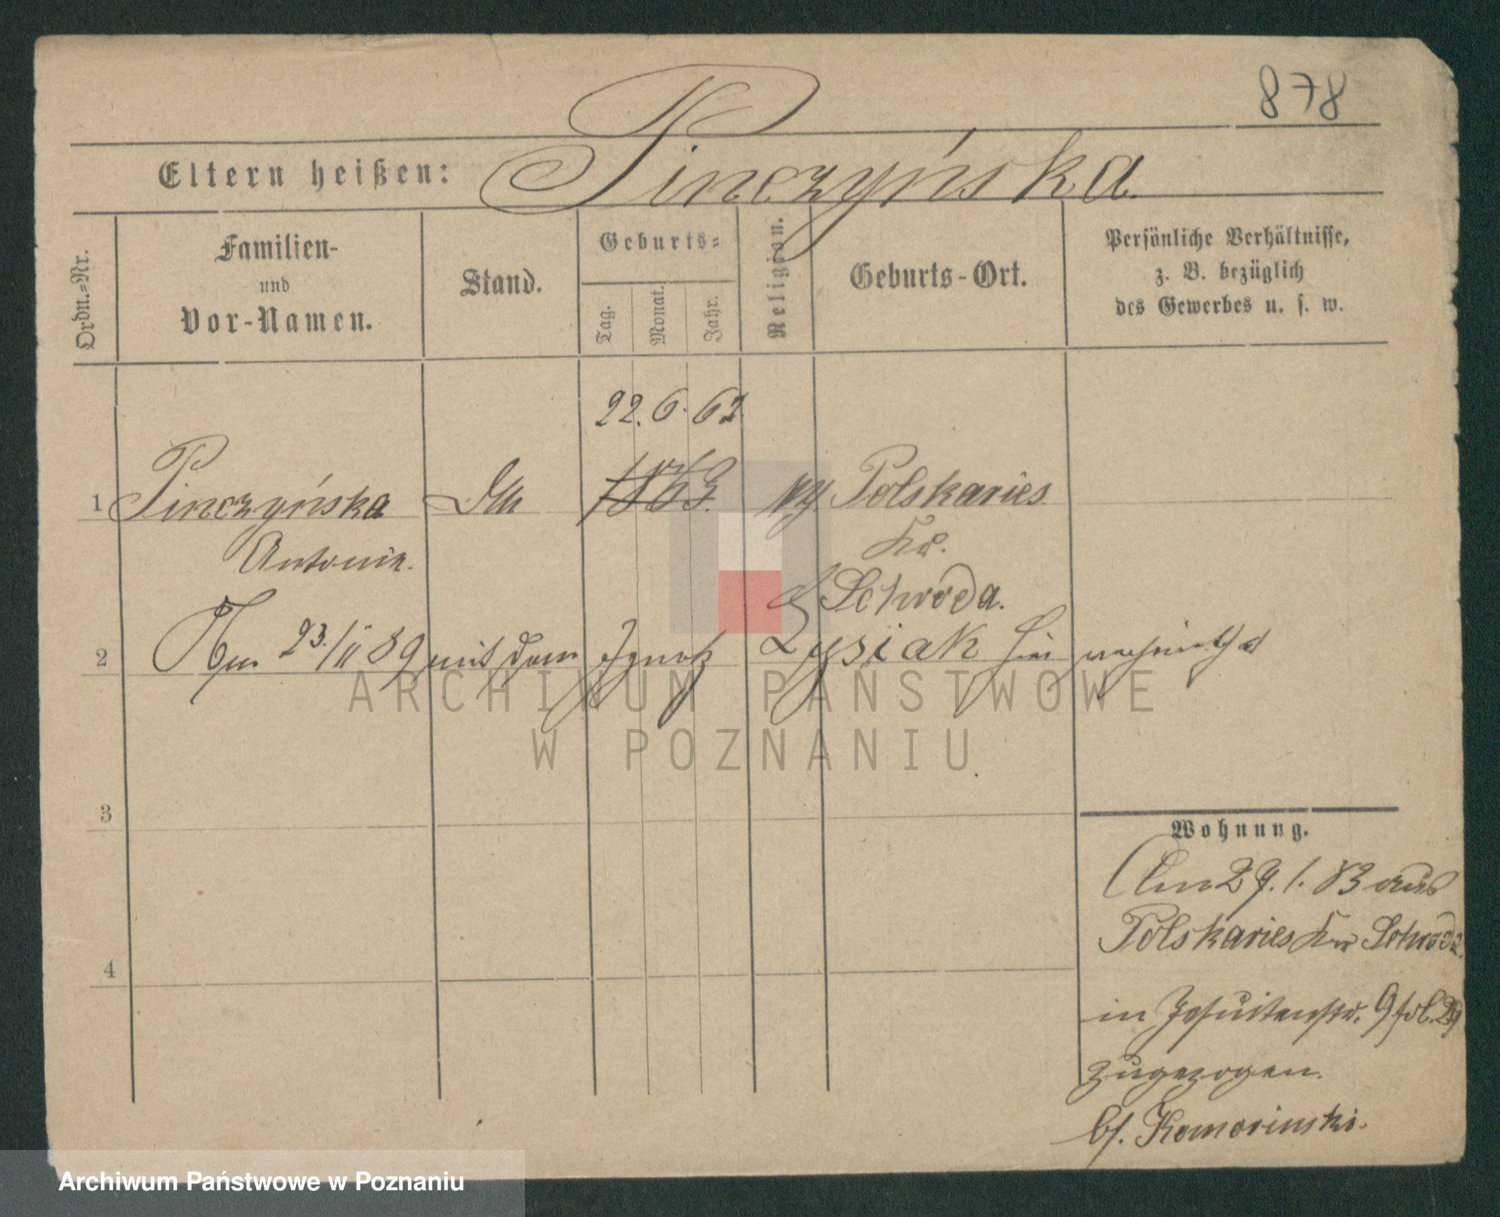 878
Eltern heißen: Pinczyńska
Ordn.-Nr.
Familien-
und
Vor-Namen.
Stand.
Geburts-
Tag.
Monat.
Jahr.
Religion.
Geburts-Ort.
Persönliche Verhältnisse,
z. B. bezüglich
des Gewerbes u. s. w.
22. 6. 62
1 Pinczyńska 1863. Polskaries
Antonie. Kr.
Schroda.
2 23./11 89 mit dem Ignatz Lysiak hier
3
4
Wohnung.
Am 29. 1. 83 aus
Polskaries Kr Schroda
in Jesuitenstr. 9 fol. 29
zugezogen.
b/. Komorinski.
ARCHIWUM PAŃSTWOWE
W POZNANIU
Archiwum Państwowe w Poznaniu